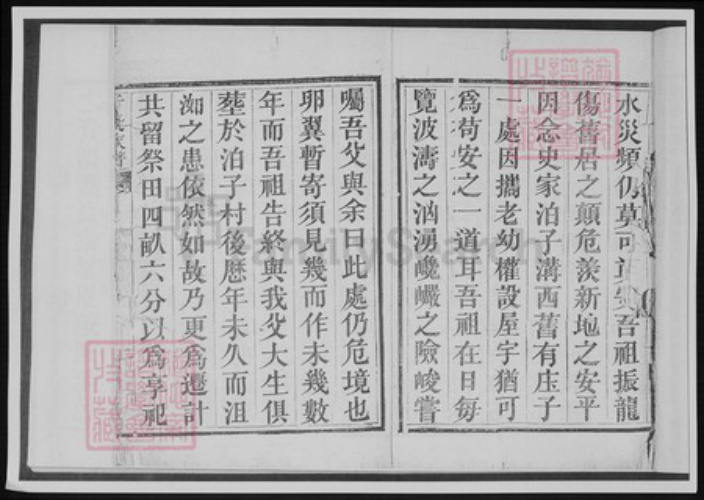 水災頻仍莫可
吾祖振龍
傷舊居之顛危羨新地之安平
因念史家泊子溝西舊有庄子
一處因攜老幼權設屋宇猶可
為苟安之一道耳吾祖在日每
覽波濤之洶湧巉巖之險峻嘗
囑吾父與余曰此處仍危境也
卵翼暫寄須見幾而作未幾數
年而吾祖告終與我父大生俱
塟於泊子村後歷年未久而沮
洳之患依然如故乃更為遷計
共留祭田四畝六分以為享祀
FamilySearch